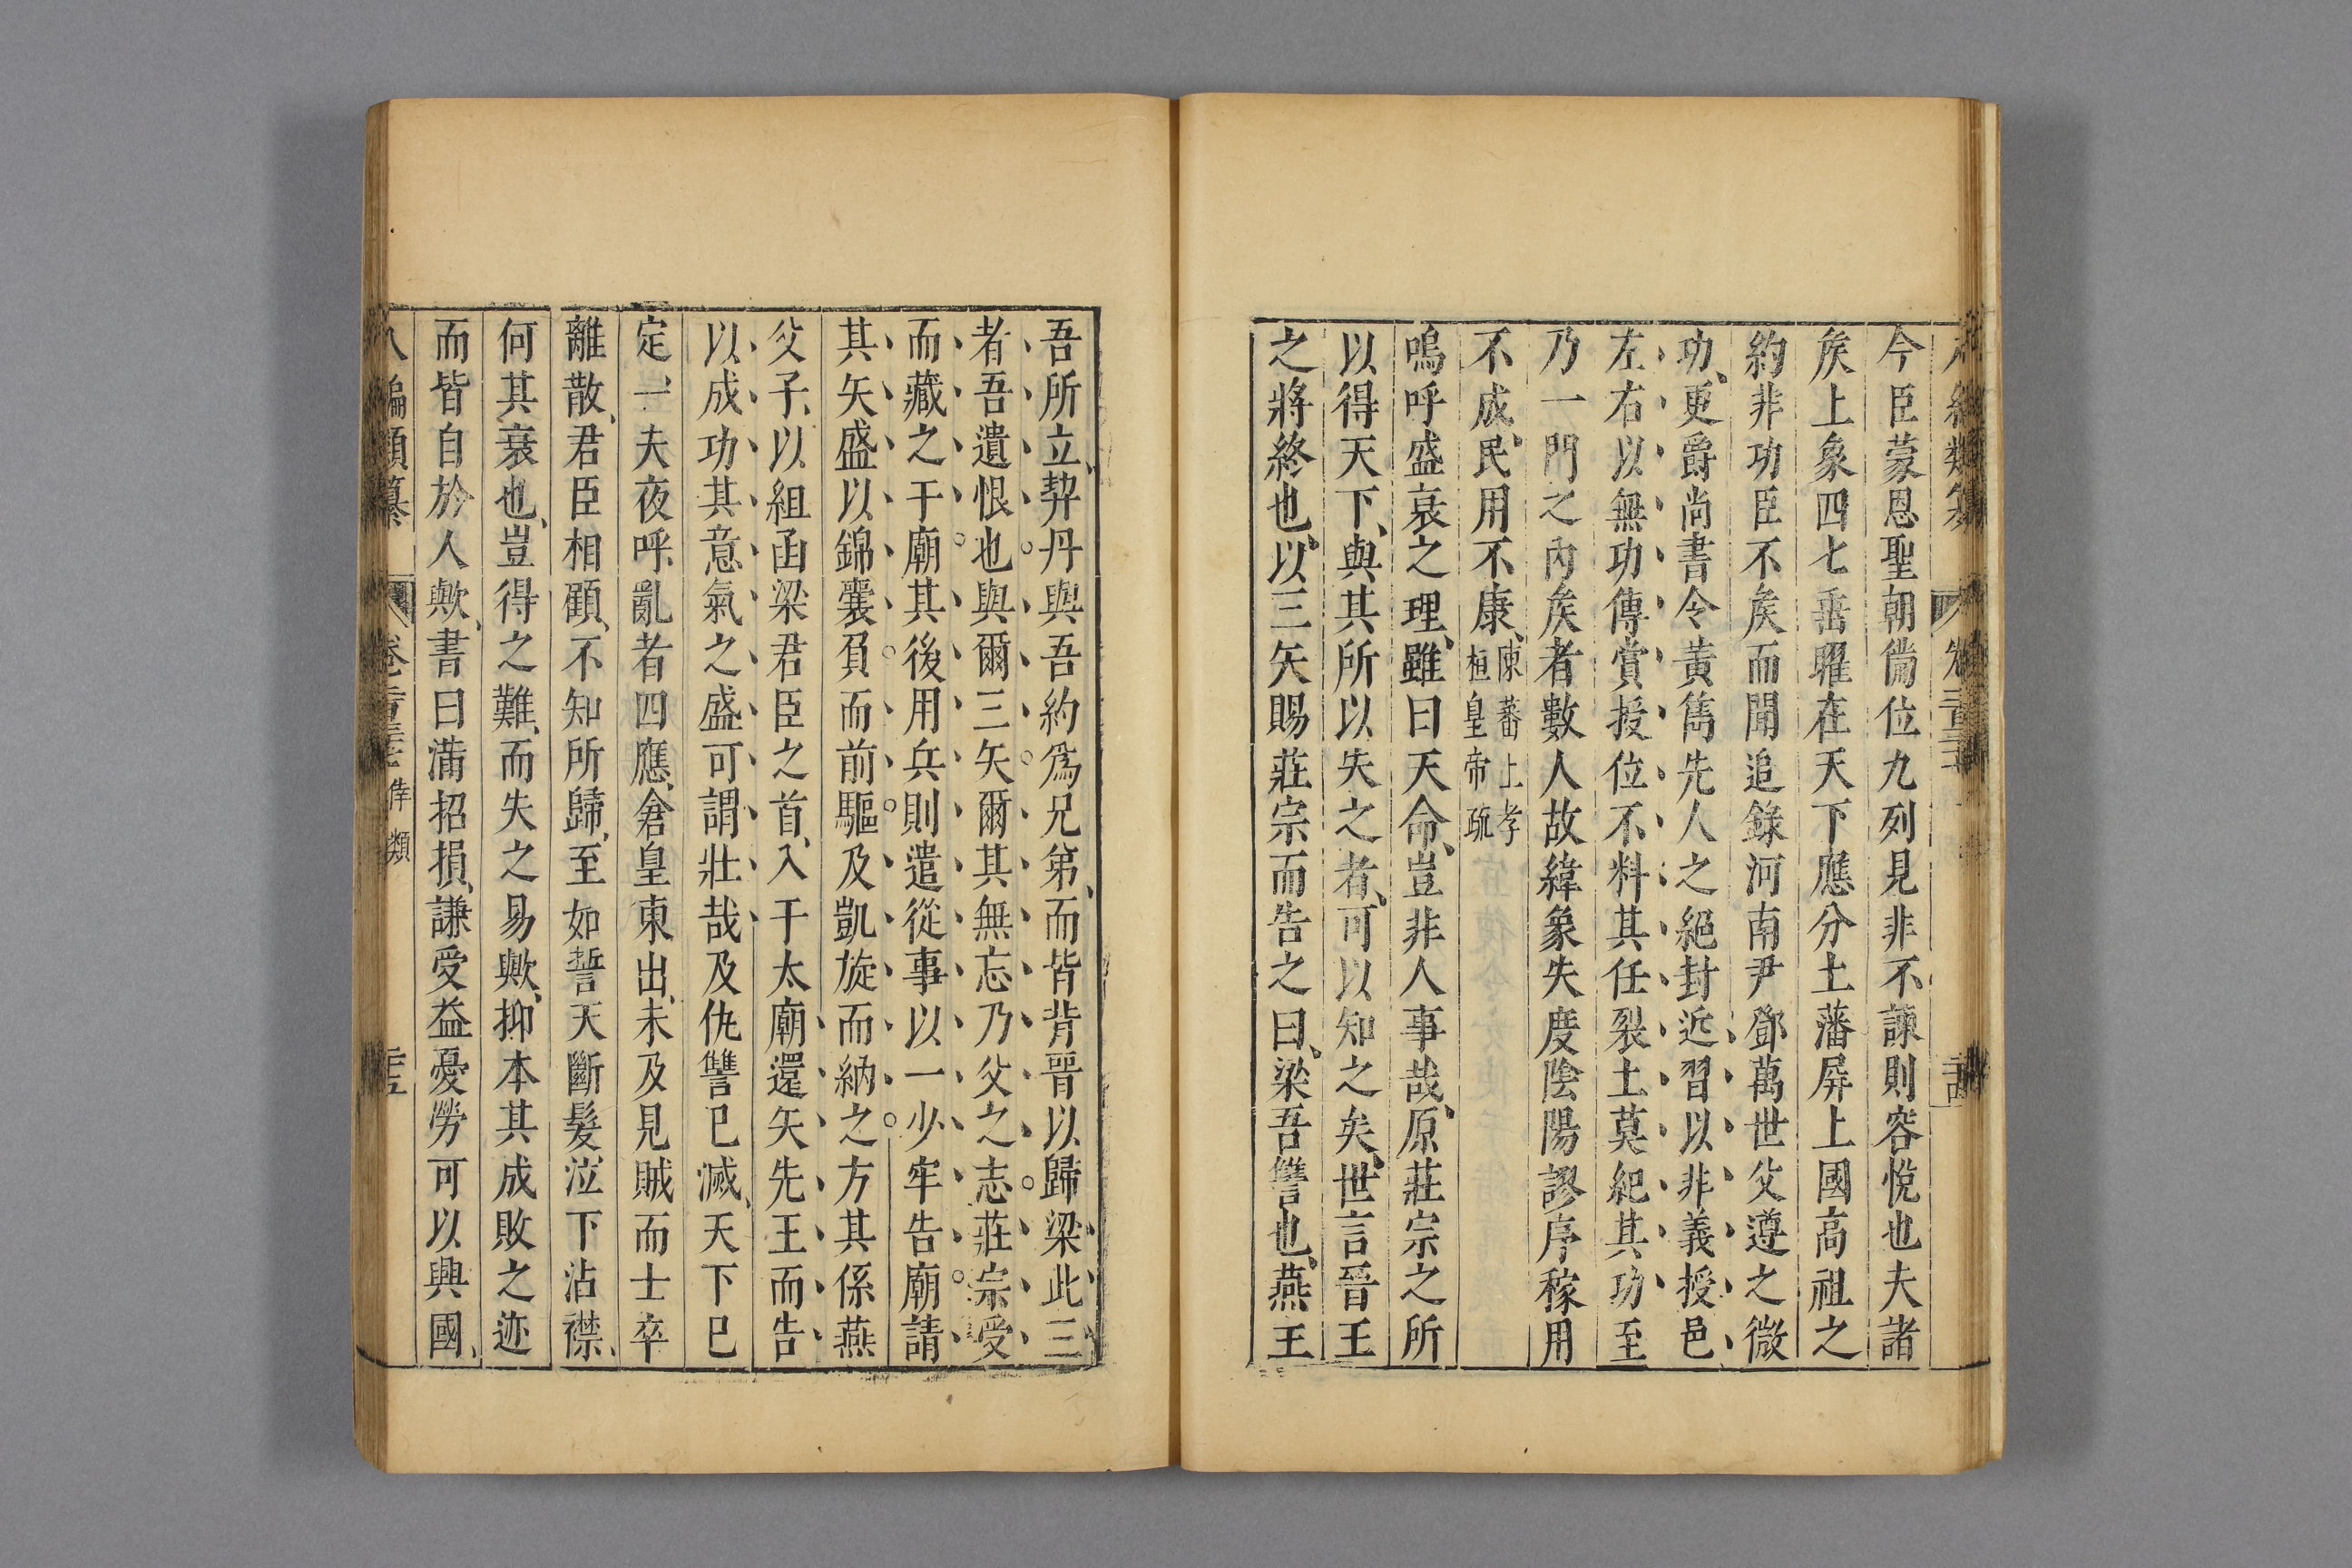 今臣蒙恩聖朝備位九列見非不諫則容悅也夫諸
矦上象四七垂耀在天下應分土藩屏上國高祖之
約非功臣不矦而聞追錄河南尹鄧萬世父遵之微
功更爵尚書令黃雋先人之絕封近習以非義授邑
左右以無功傳賞授位不料其任裂土莫紀其功至
乃一門之內矦者數人故緯象失度陰陽謬序稼用
不成民用不康陳蕃上孝桓皇帝疏
嗚呼盛衰之理雖曰天命豈非人事哉原莊宗之所
以得天下與其所以失之者可以知之矣世言晉王
之將終也以三矢賜莊宗而告之曰梁吾讐也燕王
吾所立契丹與吾約爲兄弟而皆背晉以歸梁此三
者吾遺恨也與爾三矢爾其無忘乃父之志莊宗受
而藏之于廟其後用兵則遣從事以一少牢告廟請
其矢盛以錦囊負而前驅及凱旋而納之方其係燕
父子以組函梁君臣之首入于太廟還矢先王而告
以成功其意氣之盛可謂壯哉及仇讐已滅天下已
定一夫夜呼亂者四應倉皇東出未及見賊而士卒
離散君臣相顧不知所歸至如誓天斷髮泣下沾襟
何其衰也豈得之難而失之易歟抑本其成敗之迹
而皆自於人歟書曰滿招損謙受益憂勞可以興國
八編類纂 卷二百三十 倖類 二十五